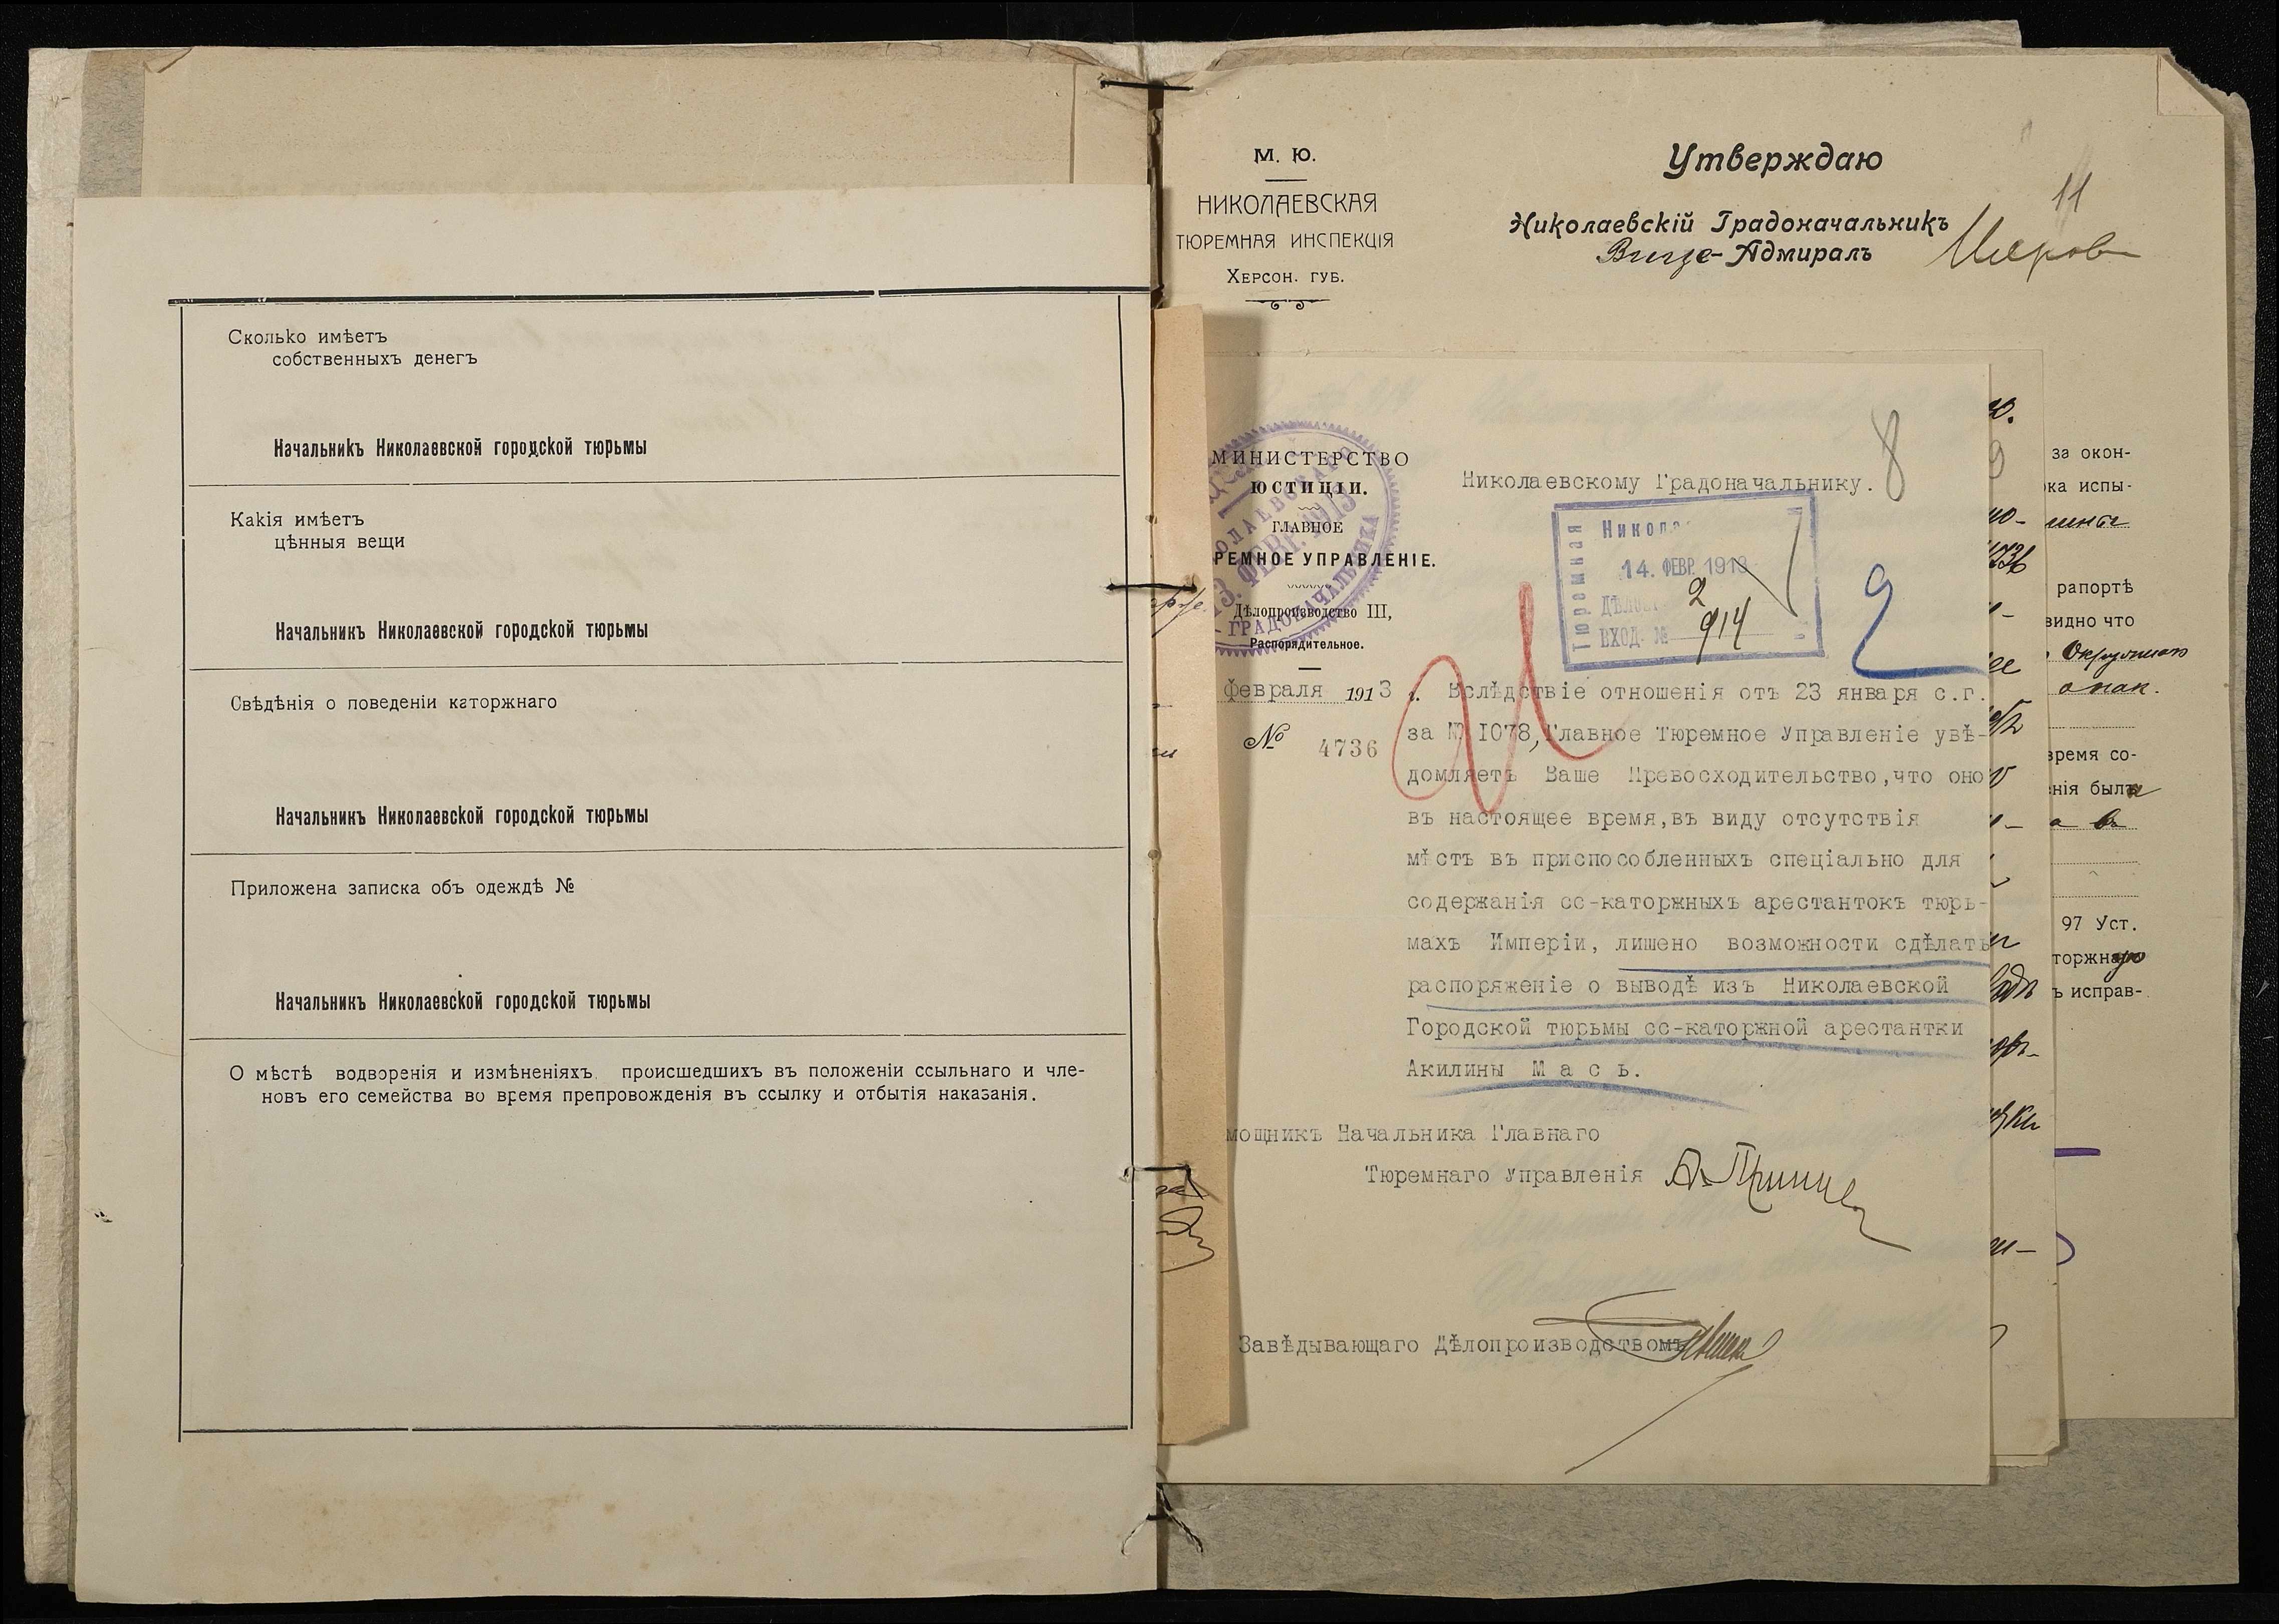 Сколько имѣетъ
собственныхъ денегъ
Начальникъ Николаевской городской тюрьмы
Какія имѣетъ
цѣнныя вещи
Начальникъ Николаевской городской тюрьмы
Свѣдѣнія о поведеніи каторжнаго
Начальникъ Николаевской городской тюрьмы
Приложена записка объ одеждѣ №
Начальникъ Николаевской городской тюрьмы
О мѣстѣ водворенія и измѣненіяхъ, происшедшихъ въ положеніи ссыльнаго и чле-
новъ его семейства во время препровожденія въ ссылку и отбытія наказанія.
М. Ю.
НИКОЛАЕВСКАЯ
ТЮРЕМНАЯ ИНСПЕКЦІЯ
ХЕРСОН. ГУБ.
Утверждаю
11
Николаевскій Градоначальникъ
Вице-Адмиралъ
МИНИСТЕРСТВО
ЮСТИЦІИ.
ГЛАВНОЕ
РЕМНОЕ УПРАВЛЕНІЕ.
Дѣлопроизводство III,
Распорядительное.
февраля 1913 г.
№ 4736
13. ФЕВР. 1913
ГРАДОНАЧАЛЬНИКА
8
Николаевскому Градоначальнику.
Тюремная
Никола
14. ФЕВР. 1913
2
ВХОД. № 914
2
Вслѣдствіе отношенія отъ 23 января с.г.
за № I078, Главное Тюремное Управленіе увѣ-
домляетъ Ваше Превосходительство, что оно
въ настоящее время, въ виду отсутствія
мѣстъ въ приспособленныхъ спеціально для
содержанія сс-каторжныхъ арестантокъ тюрь-
махъ Имперіи, лишено возможности сдѣлать
распоряженіе о выводѣ изъ Николаевской
Городской тюрьмы сс-каторжной арестантки
Акилины Мась.
мощникъ Начальника Главнаго
Тюремнаго Управленія
Завѣдывающаго Дѣлопроизводствомъ
за окон-
ока испы-
рапортѣ
видно что
Окружном
время со-
енія была
а в
97 Уст.
торжную
ъ исправ-